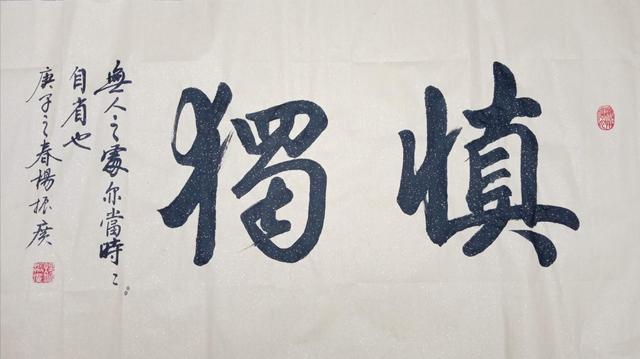 慎獨
無人之處尔當時〻
自省也
庚子之春楊振廣